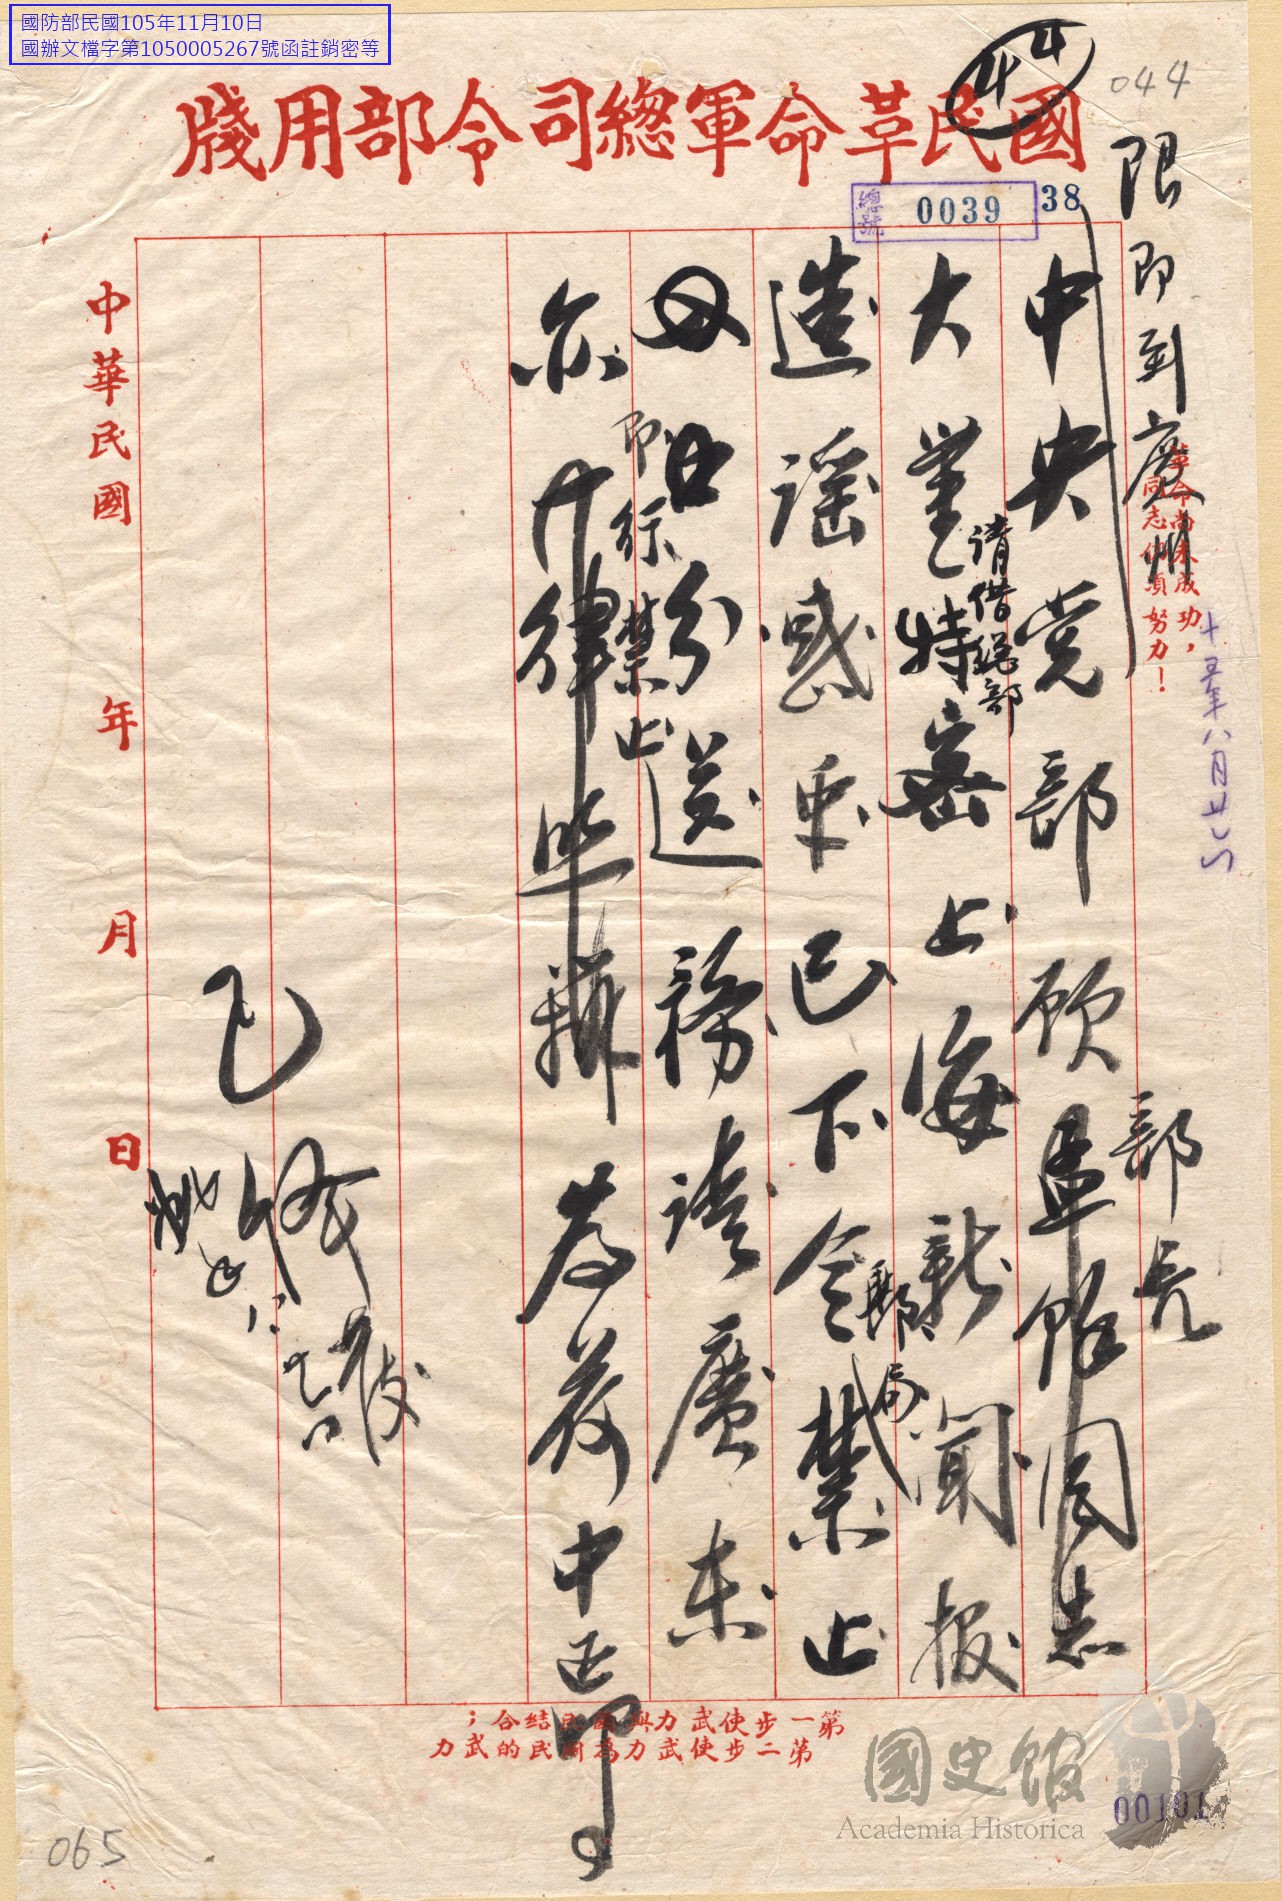 國防部民國105年11月10日
國辦文檔字第1050005267號函註銷密等
044
44
國民革命軍總司令部用牋
總號 0039
38
限即到廣州
革命尚未成功，
同志仍須努力！
十五年八月廿七
中央党部顾孟餘同志
部长
大鉴特密上海新闻报
请借總部
造谣惑众已下令禁止
郵局
如日份送務請廣東
即行禁止
亦一律照辦為荷中正卬
中華民國 年 月 日
第一步使武力與國民結合；
第二步使武力為國民的武力
國史館
Academia Historica
00101
065